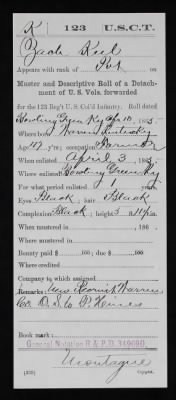 K | 123 | U.S.C.T.
Zach Keel
Appears with rank of Pvt on
Muster and Descriptive Roll of a Detach-
ment of U. S. Vols. forwarded
for the 123 Reg't U. S. Col'd Infantry. Roll dated
Bowling Green Ky Apr 10, 1865.
Where born Warren Kentucky
Age 42 y'rs; occupation Farmer
When enlisted April 3, 1865.
Where enlisted Bowling Green Ky
For what period enlisted years.
Eyes Black; hair Black
Complexion Black; height 5 ft. in.
When mustered in , 186 .
Where mustered in
Bounty paid $ 100; due $ 100
Where credited
Company to which assigned
Remarks: Warren
Co. D. S. to P. Hines
Book mark:
General Notation R. & P. D. 349690
Montague
(339) Copyist.